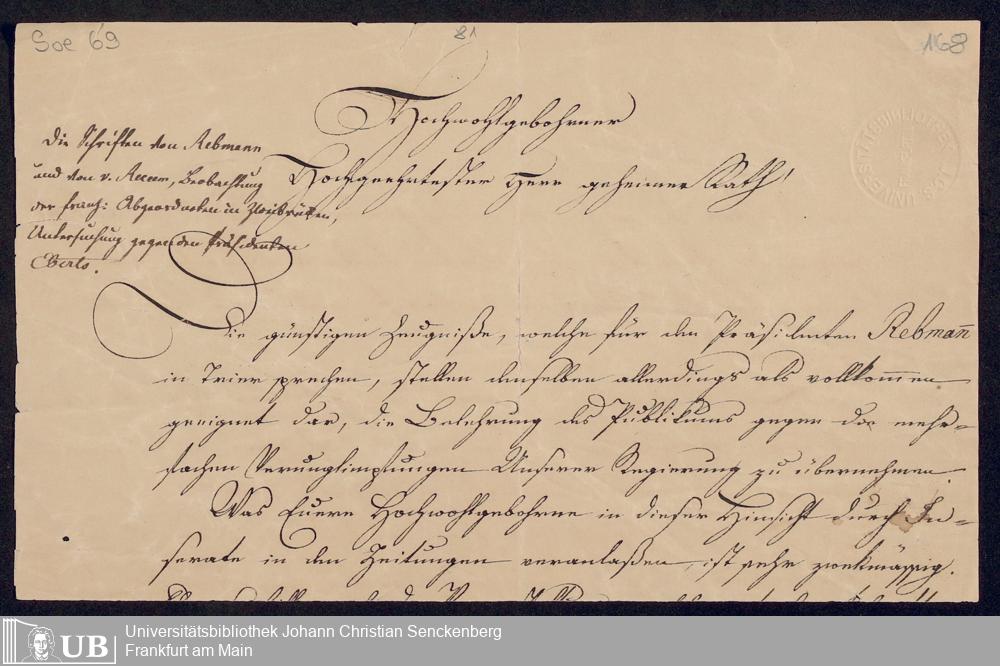 Soe 69
81
168
Hochwohlgebohrner
Hochgeehrtester Herr geheimer Rath!
Die Schriften von Rebmann
und von v. Beobachtung
der franz: Abgeordneten in Zweibrücken,
Untersuchung gegen den Präsidenten
Die günstigen Zeugniße, welche für den Präsidenten Rebmañ
in Trier sprechen, stellen denselben allerdings als vollkom̅en
geeignet dar, die Belehrung des Publikums gegen die mehr-
fachen Verunglimpfungen Unserer Regierung zu übernehmen.
Was Euere Hochwohlgebohrne in dieser Hinsicht durch In-
serate in den Zeitungen veranlaßen, ist sehr zwekmässig.
UNIVERSITÄTSBIBLIOTHEK
UB
Universitätsbibliothek Johann Christian Senckenberg
Frankfurt am Main